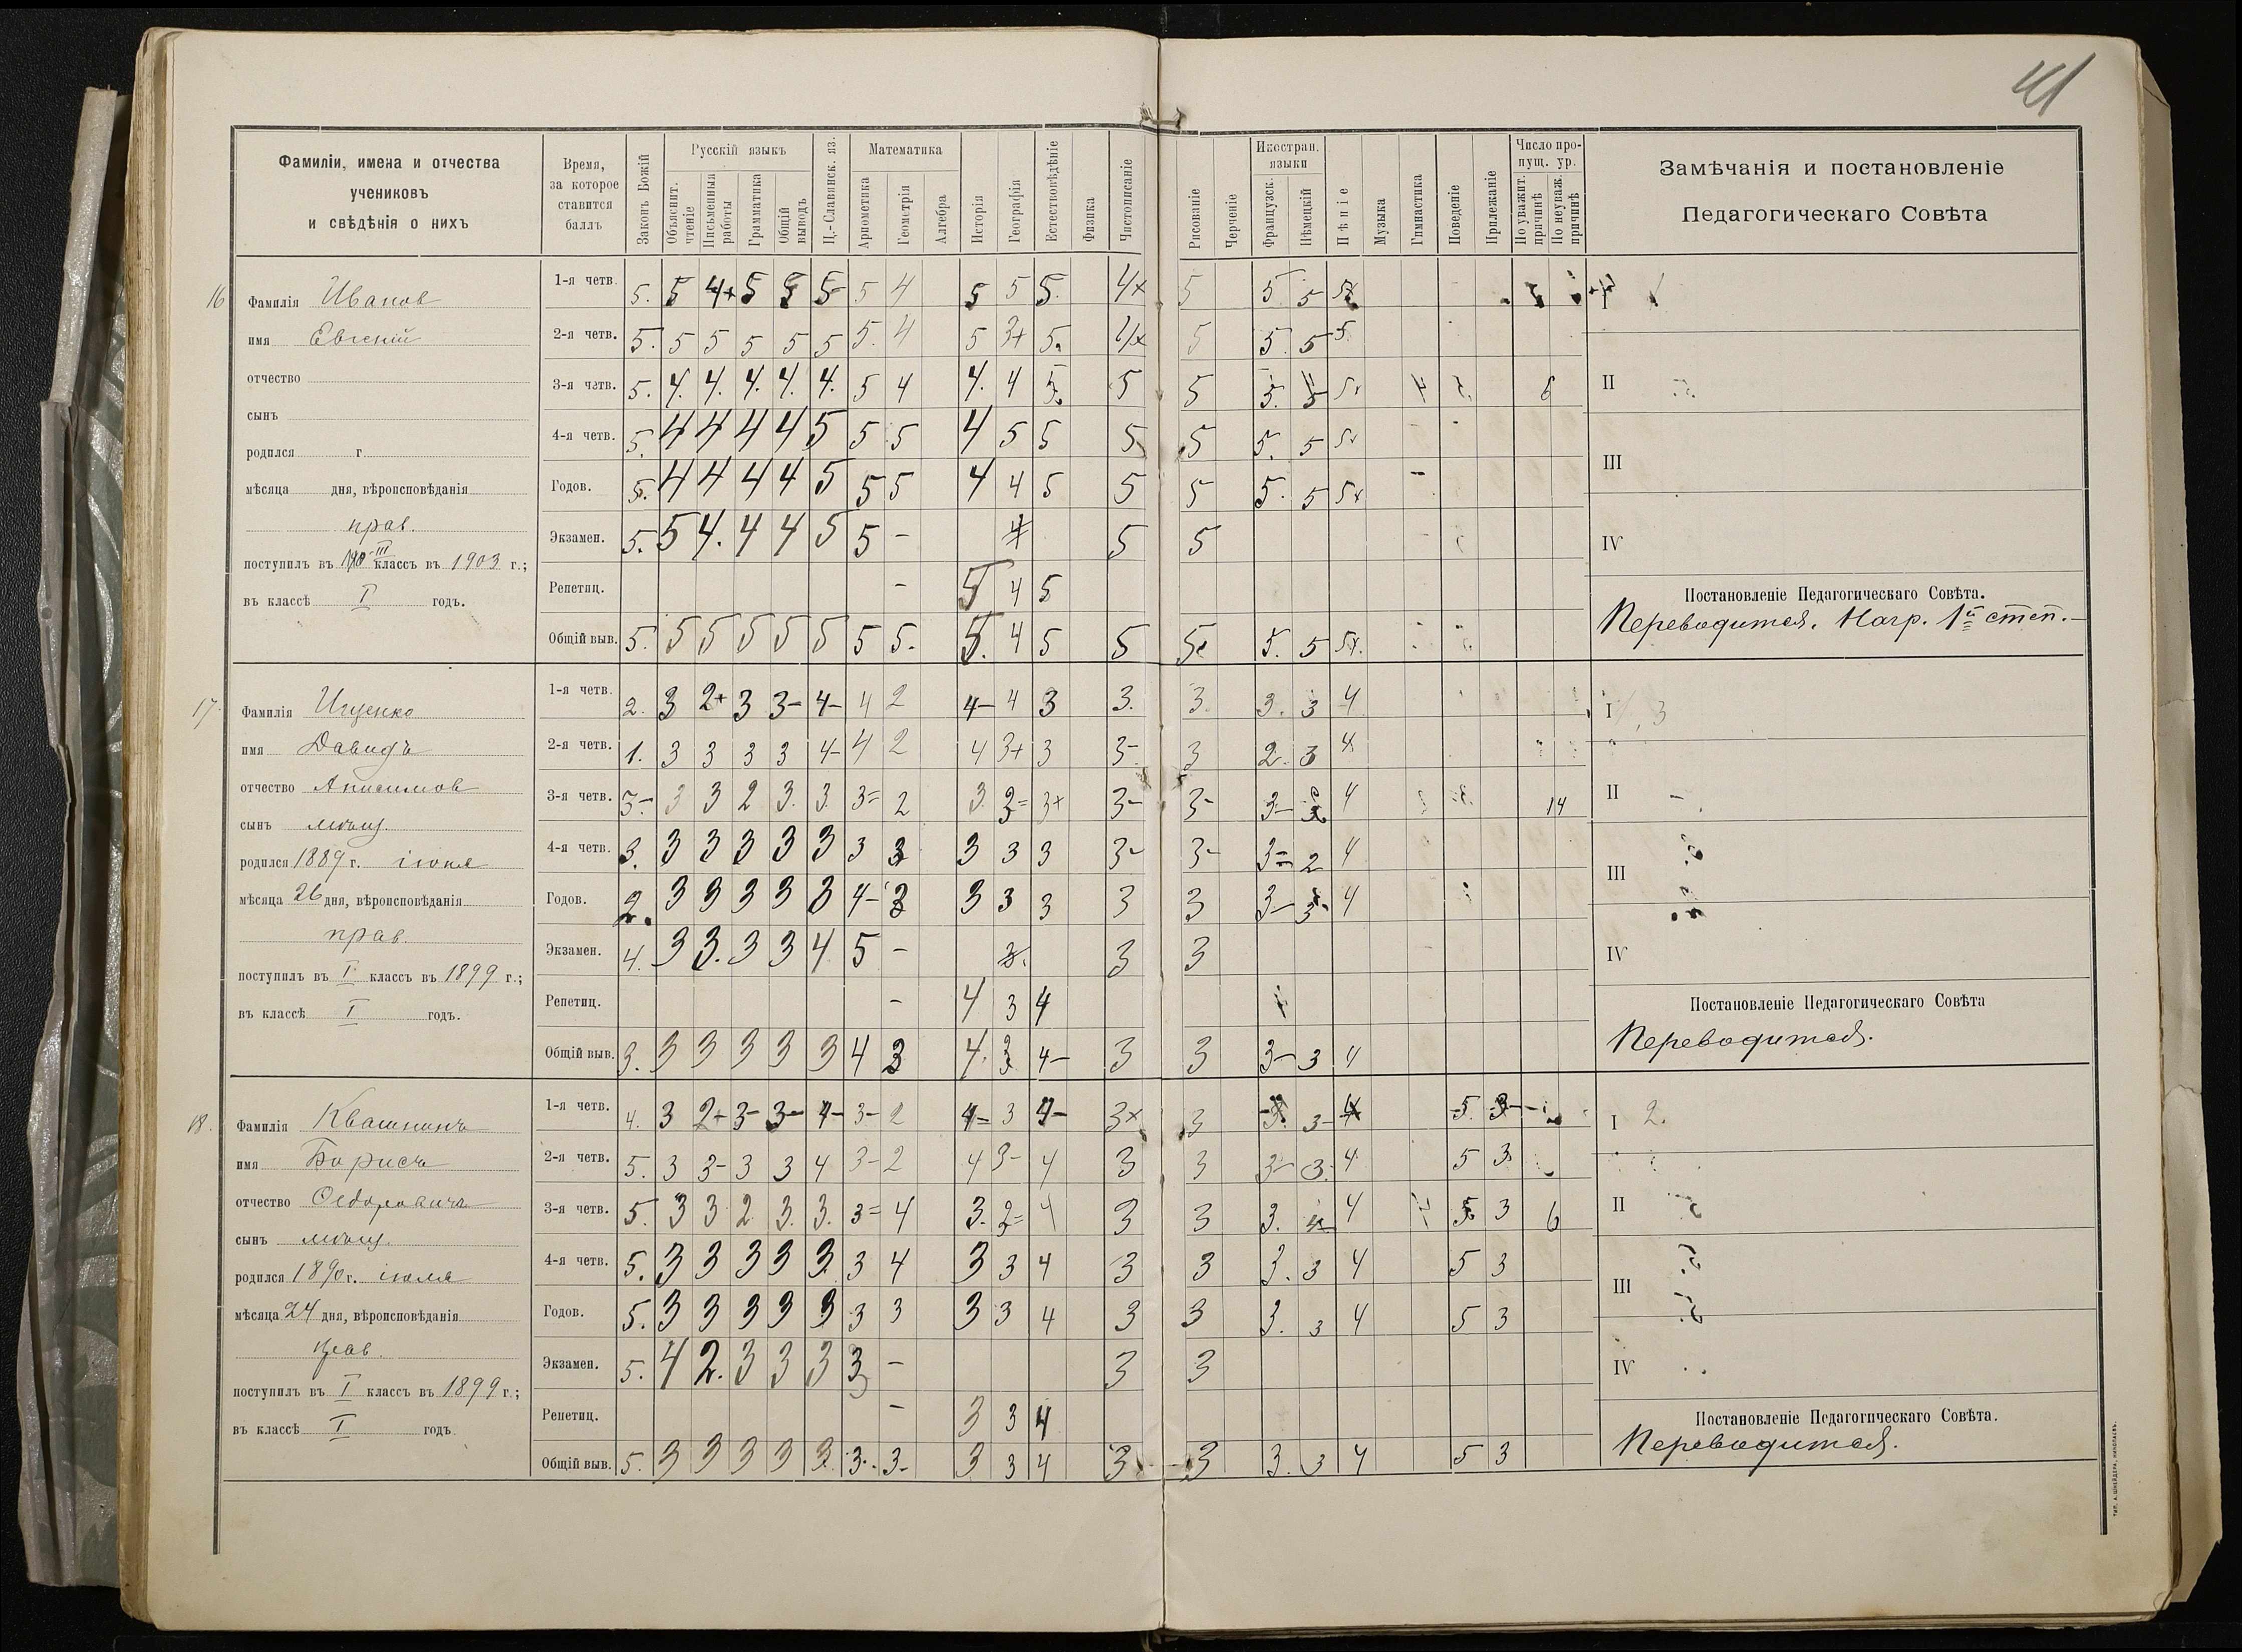 41
Фамиліи, имена и отчества
учениковъ
и свѣдѣнія о нихъ
Время,
за которое
ставится
баллъ
Законъ Божій
Русскій языкъ
Объяснит. чтеніе
Письменныя работы
Грамматика
Общій выводъ
Ц.-Славянск. яз.
Математика
Ариѳметика
Геометрія
Алгебра
Исторія
Географія
Естествовѣдѣніе
Физика
Чистописаніе
Рисованіе
Черченіе
Иностран.
языки
Французск.
Нѣмецкій
Пѣніе
Музыка
Гимнастика
Поведеніе
Прилежаніе
Число про-
пущ. ур.
По уважит. причинѣ
По неуваж. причинѣ
Замѣчанія и постановленіе
Педагогическаго Совѣта
16
Фамилія Иванов
имя Евгеній
отчество
сынъ
родился г.
мѣсяца дня, вѣроисповѣданія
прав.
поступилъ въ III классъ въ 1903 г.;
въ классѣ I годъ.
1-я четв. 5. 5 4+ 5 5 5- 5 4 5 5 5. 4x 5 5. 5 5x
2-я четв. 5. 5 5 5 5 5 5. 4 5 3+ 5. 4x 5 5. 5 5
3-я четв. 5. 4. 4. 4. 4. 4. 5 4 4. 4 5. 5 5 5. 5 5x 6
4-я четв. 5. 4 4 4 4 5 5 5 4 5 5 5 5 5. 5 5x
Годов. 5. 4 4 4 4 5 5 5 4 4 5 5 5 5. 5 5x
Экзамен. 5. 5 4. 4 4 5 5 - 4 5 5
Репетиц. - 5 4 5
Общій выв. 5. 5 5 5 5 5 5 5. 5. 4 5 5 5. 5. 5 5x.
I
II
III
IV
Постановленіе Педагогическаго Совѣта.
Переводится. Нагр. 1й степ.
17
Фамилія Ищенко
имя Давидъ
отчество Анисимов
сынъ мѣщ.
родился 1889 г. іюня
мѣсяца 26 дня, вѣроисповѣданія
прав.
поступилъ въ I классъ въ 1899 г.;
въ классѣ I годъ.
1-я четв. 2. 3 2+ 3 3- 4- 4 2 4- 4 3 3. 3. 3. 3 4
2-я четв. 1. 3 3 3 3 4- 4 2 4 3+ 3 3- 3 2. 3 4
3-я четв. 3- 3 3 2 3. 3. 3= 2 3. 2= 3+ 3- 3- 3- 2 4 14
4-я четв. 3. 3 3 3 3 3 3 3 3 3 3 3- 3- 3= 2 4
Годов. 2. 3 3 3 3 3 4- 3 3 3 3 3 3 3- 3 4
Экзамен. 4. 3 3. 3 3 4 5 - 3. 3 3
Репетиц. - 4 3 4
Общій выв. 3. 3 3 3 3 3 4 3 4. 3 4- 3 3 3- 3 4
I 3
II
III
IV
Постановленіе Педагогическаго Совѣта
Переводится.
18.
Фамилія Квашнинъ
имя Борисъ
отчество Ѳедоровичъ
сынъ мѣщ.
родился 1890 г. іюля
мѣсяца 24 дня, вѣроисповѣданія
прав.
поступилъ въ I классъ въ 1899 г.;
въ классѣ I годъ
1-я четв. 4. 3 2+ 3- 3- 4- 3- 2 4= 3 4- 3x 3 3. 3- 4 5. 3-
2-я четв. 5. 3 3- 3 3 4 3- 2 4 3- 4 3 3 3- 3. 4 5 3
3-я четв. 5. 3 3 2 3. 3. 3= 4 3. 2= 4 3 3 3. 4 5 3 6
4-я четв. 5. 3 3 3 3 3. 3 4 3 3 4 3 3 3. 3 4 5 3
Годов. 5. 3 3 3 3 3 3 3 3 3 4 3 3 3. 3 4 5 3
Экзамен. 5. 4 2. 3 3 3 3 - 3 3
Репетиц. - 3 3 4
Общій выв. 5. 3 3 3 3 3. 3. 3- 3 3 4 3 3 3. 3 4 5 3
I 2.
II
III
IV
Постановленіе Педагогическаго Совѣта.
Переводится.